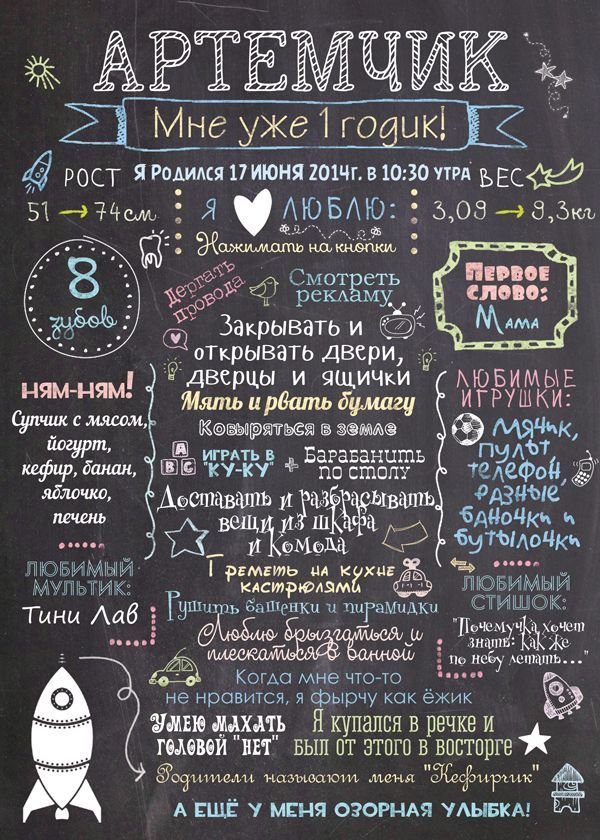 АРТЕМЧИК
Мне уже 1 годик!
Я РОДИЛСЯ 17 ИЮНЯ 2014г. В 10:30 УТРА
РОСТ
51 → 74см
ВЕС
3,09 → 9,3кг
Я ЛЮБЛЮ:
Нажимать на кнопки
Дергать
провода
Смотреть
рекламу
Закрывать и
открывать двери,
дверцы и ящички
Мять и рвать бумагу
Кобыряться в земле
A B C
ИГРАТЬ В
"КУ-КУ"
+
Барабанить
по столу
Доставать и разбрасывать
вещи из шкафа
и комода
Греметь на кухне
кастрюлями
Рушить башенки и пирамидки
Люблю брызгаться и
плескаться в ванной
Когда мне что-то
не нравится, я фырчу как ёжик
8
зубов
Первое
слово:
Мама
НЯМ-НЯМ!
Супчик с мясом,
йогурт,
кефир, банан,
яблочко,
печень
ЛЮБИМЫЕ
ИГРУШКИ:
Мячик,
пульт,
телефон,
разные
баночки и
бутылочки
ЛЮБИМЫЙ
МУЛЬТИК:
Тини Лав
ЛЮБИМЫЙ
СТИШОК:
"Почемучка хочет
знать: как же
по небу летать..."
Умею махать
головой "нет"
Я купался в речке и
был от этого в восторге
Родители называют меня "Кефирчик"
А ЕЩЁ У МЕНЯ ОЗОРНАЯ УЛЫБКА!